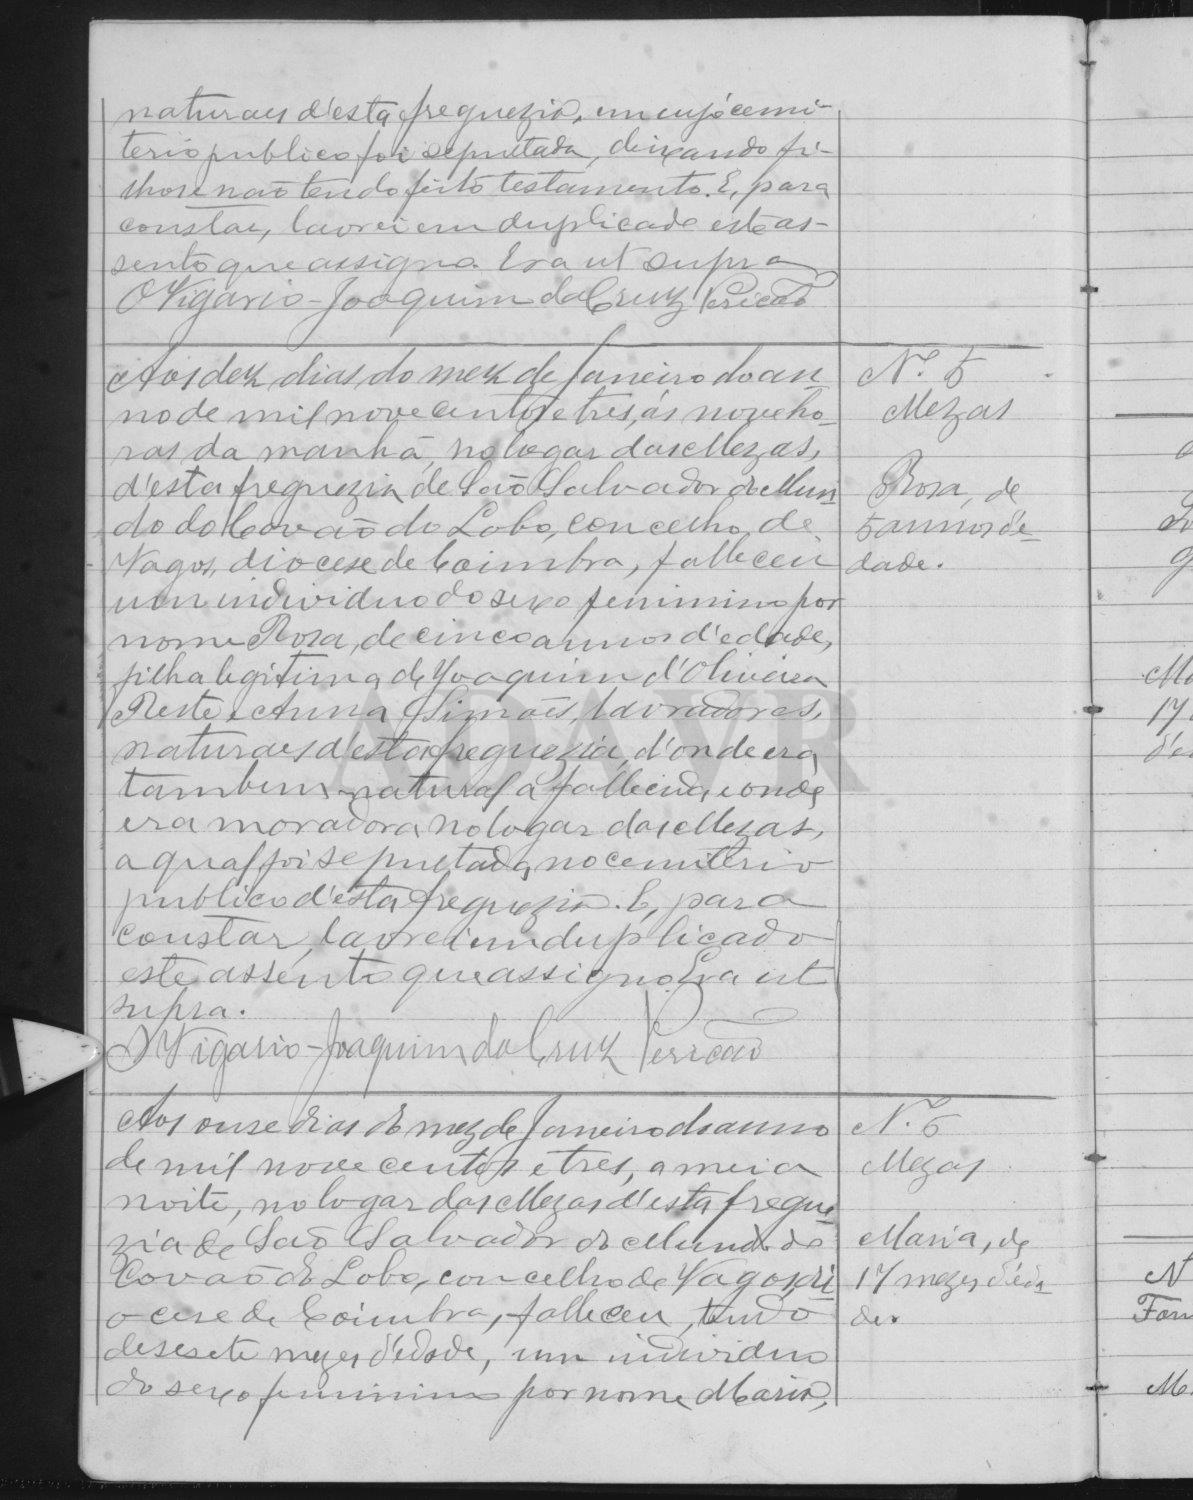 naturaes d'esta freguezia, em cujo cemi-
terio publico foi sepultada, deixando fi-
lhos e não tendo feito testamento. E, para
constar, lavrei em duplicado este as-
sento que assigno. Era ut supra
O Vigario - Joaquim da Cruz Pericão
Aos dez dias do mez de Janeiro do an-
no de mil nove centos e tres, ás nove ho-
ras da manhã, no logar das Mezas,
d'esta freguezia de São Salvador do Mun-
do do Covão do Lobo, concelho de
Vagos, diocese de Coimbra, falleceu
um individuo do sexo feminino por
nome Rosa, de cinco annos d'edade,
filha legitima de Joaquim d'Oliveira
Reste e Anna Simões, lavradores,
naturaes d'esta freguezia, d'onde era
tambem natural a fallecida e onde
era moradora no logar das Mezas,
a qual foi sepultada no cemiterio
publico d'esta freguezia. E, para
constar, lavrei em duplicado
este assento que assigno. Era ut
supra.
O Vigario - Joaquim da Cruz Pericão
Aos onse dias do mez de Janeiro do anno
de mil nove centos e tres, a meia
noite, no logar das Mezas d'esta fregue-
zia de São Salvador do Mundo do
Covão do Lobo, concelho de Vagos, di-
ocese de Coimbra, falleceu, tendo
desesete mezes d'edade, um individuo
do sexo feminino por nome Maria,
N.º 5
Mezas
Rosa, de
5 annos d'e-
dade.
N.º 6
Mezas
Maria, de
17 mezes d'eda-
de.
ADAVR